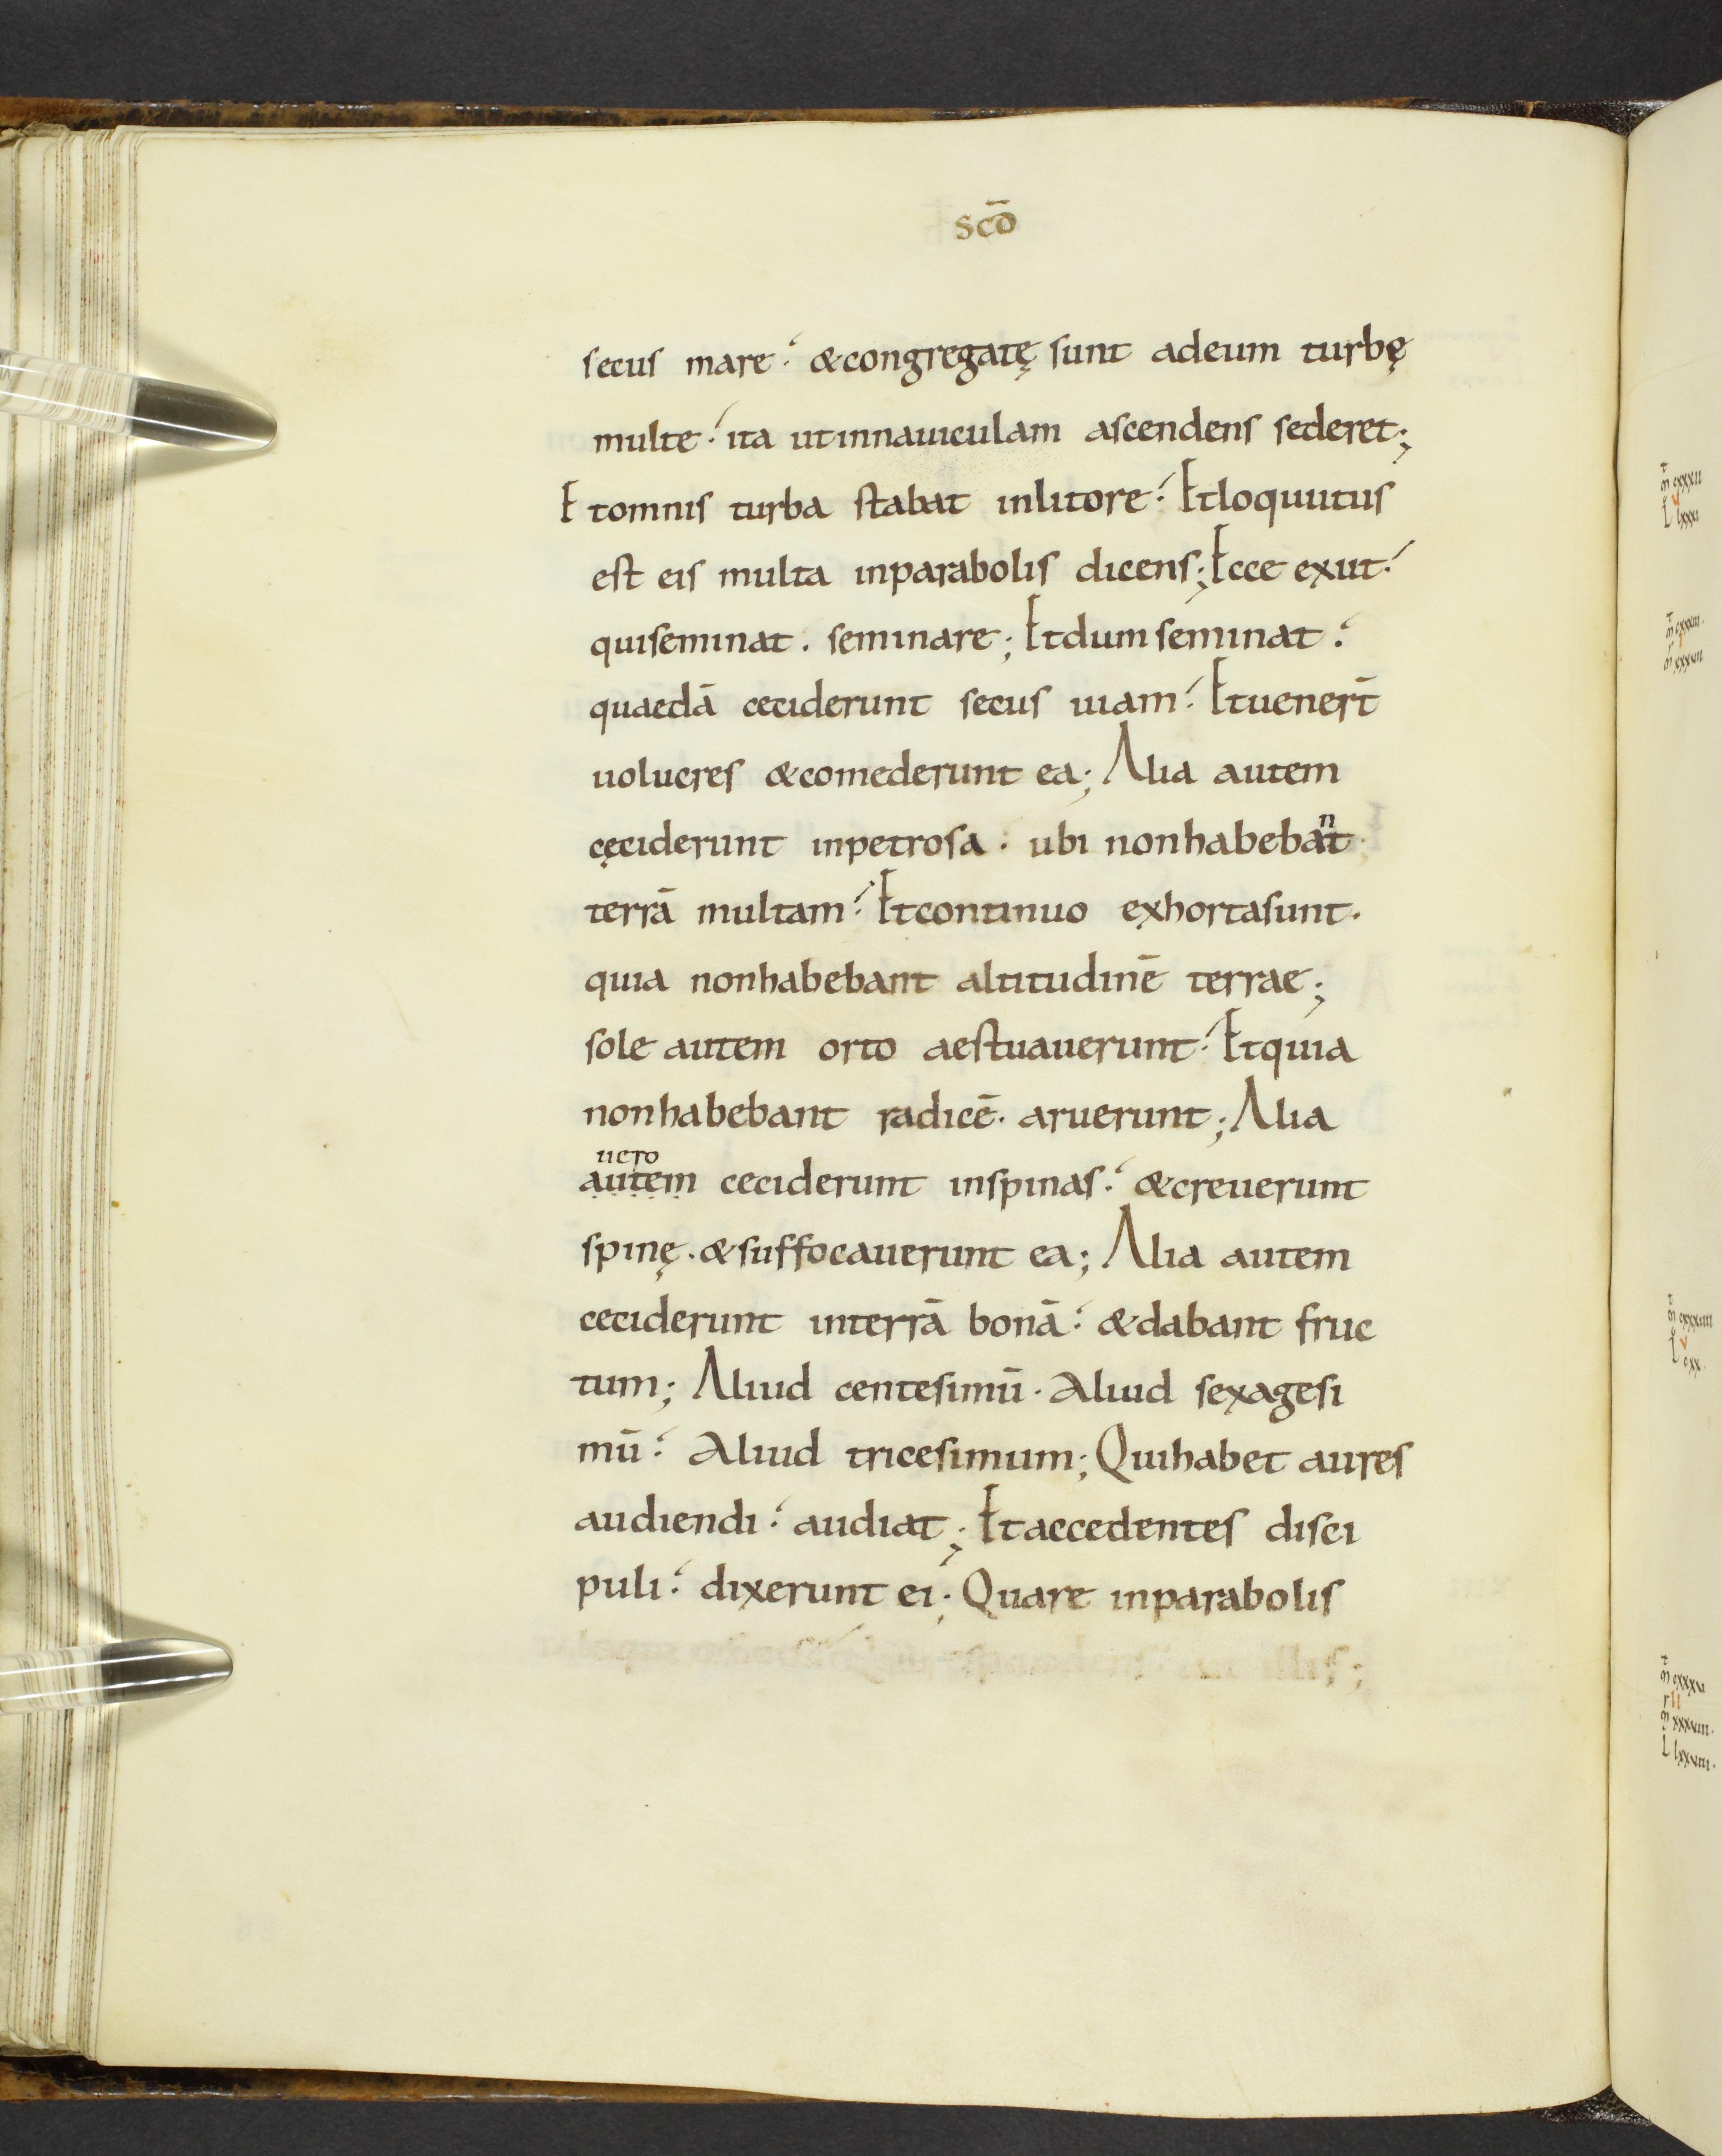 scō
secus mare : & congregatę sunt adeum turbę
multe : ita utinnauiculam ascendens sederet ;
Etomnis turba stabat inlitore : Etloquutus
est eis multa inparabolis dicens ; Ecce exiit .
quiseminat . seminare ; Etdum seminat :
quaedā ceciderunt secus uiam : Etuenerт̄
uolucres &comederunt ea ; Alia autem
cęciderunt inpetrosa . ubi nonhabebant
terrā multam : Etcontinuo exhortasunt .
quia nonhabebant altitudinē terrae ;
sole autem orto aestuauerunt : Etquia
nonhabebant radicē . aruerunt ; Alia
uero
autem ceciderunt inspinas : &creuerunt
spinę . &suffocauerunt ea ; Alia autem
ceciderunt interrā bonā : &dabant fruc
tum ; Aliud centesimū . Aliud sexagesi
mū : Aliud tricesimum ; Quihabet aures
audiendi : audiat ; Etaccedentes disci
puli : dixerunt ei ; Quare inparabolis